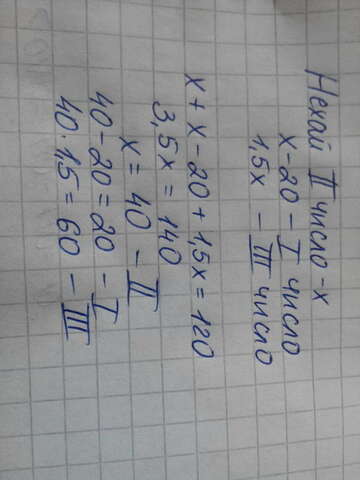 Нехай II число - x
x - 20 - I число
1,5x - III число
x + x - 20 + 1,5x = 120
3,5x = 140
x = 40 - II
40 - 20 = 20 - I
40 · 1,5 = 60 - III